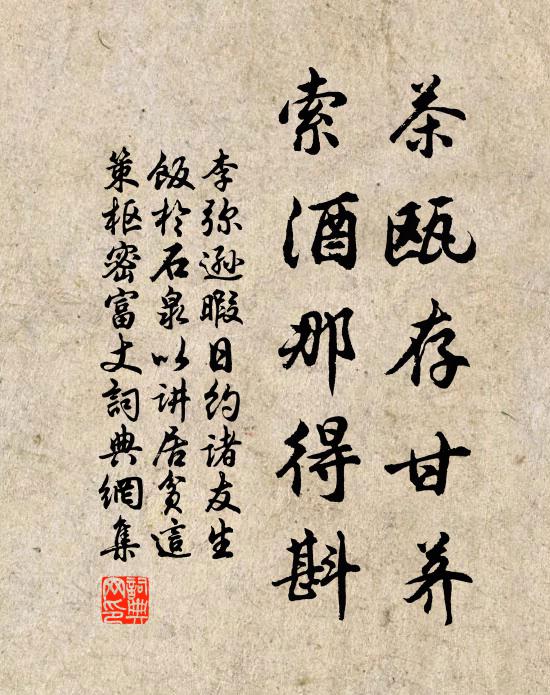 茶瓯存甘养
索酒那得斟
李弥逊暇日约诸友生
饭于石泉以讲居贫這
策枢密富丈詞典網集
詞典网印